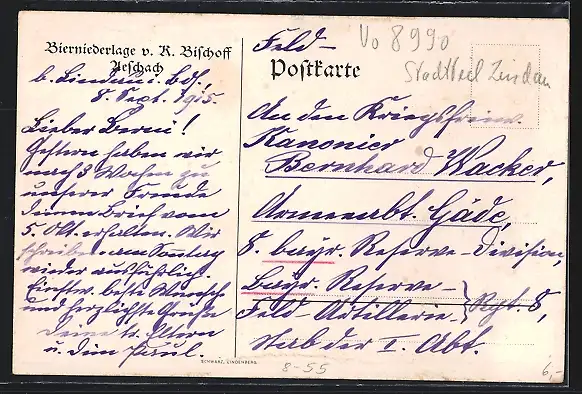 Bierniederlage v. K. Bischoff
Aeschach
b. Lindau i. Bds.
8. Sept. 1915.
Lieber Berni!
Gestern haben wir
nach 3 Wochen zu
unserer Freude
deinen Brief vom
5. Okt. erhalten. Wir
schreiben am Sonntag
wieder ausführlich.
Einstw. beste Wünsche
und herzlichste Grüße
Deine tr. Eltern
u. dein Paul.
Feld-
Postkarte
Vo 8990
Stadtteil Lindau
An den Kriegsfreiw.
Kanonier
Bernhard Wacker,
Armeeabt. Gäde,
8. bayr. Reserve-Division,
Bayr. Reserve-
Feld-Artillerie- Rgt. 8,
Stab der I. Abt.
SCHWARZ, LINDENBERG.
8-55
6,-